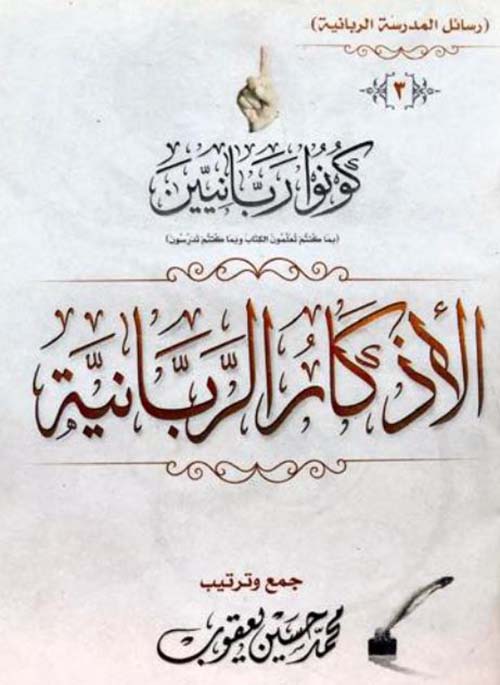 (رسائل المدرسة الربانية)
٣
كُونُوا رَبَّانِيِّينَ
(بِمَا كُنْتُمْ تُعَلِّمُونَ الْكِتَابَ وَبِمَا كُنْتُمْ تَدْرُسُونَ)
الأَذْكَارُ الرَّبَّانِيَّة
جمع وترتيب
محمد حسين يعقوب